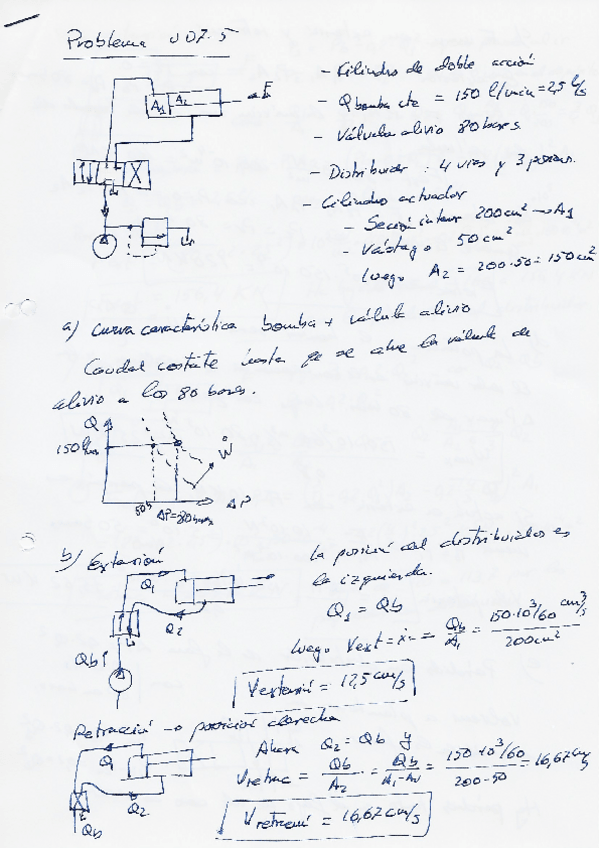 Problema 007.5
- Cilindro de doble acción
- Qbomba cte = 150 l/min = 2,5 l/s
- Válvula alivio 80 bares.
- Distribuidor : 4 vías y 3 posicion.
- Cilindro actuador
- Sección interior 200 cm² → A1
- Vástago 50 cm²
luego A2 = 200-50 = 150 cm²
F
A1 A2
a) Curva característica bomba + válvula alivio
Caudal constante hasta que se abre la válvula de
alivio a los 80 bares.
Q
150 l/min
Ẇ
ΔP=80 bares
ΔP
b) Extensión
La posición del distribuidor es
la izquierda.
Q1 = Qb
luego Vext = ẋ = Qb/A1 = 150·10³/60 cm³/s / 200cm²
Vextensión = 12,5 cm/s
Q1
Q2
Qb
Retracción → posición derecha
Ahora Q2 = Qb y
Vretrac = Qb/A2 = Qb/A1-Av = 150·10³/60 / 200-50 = 16,67 cm/s
Vretracción = 16,67 cm/s
Q1
Q2
Qb